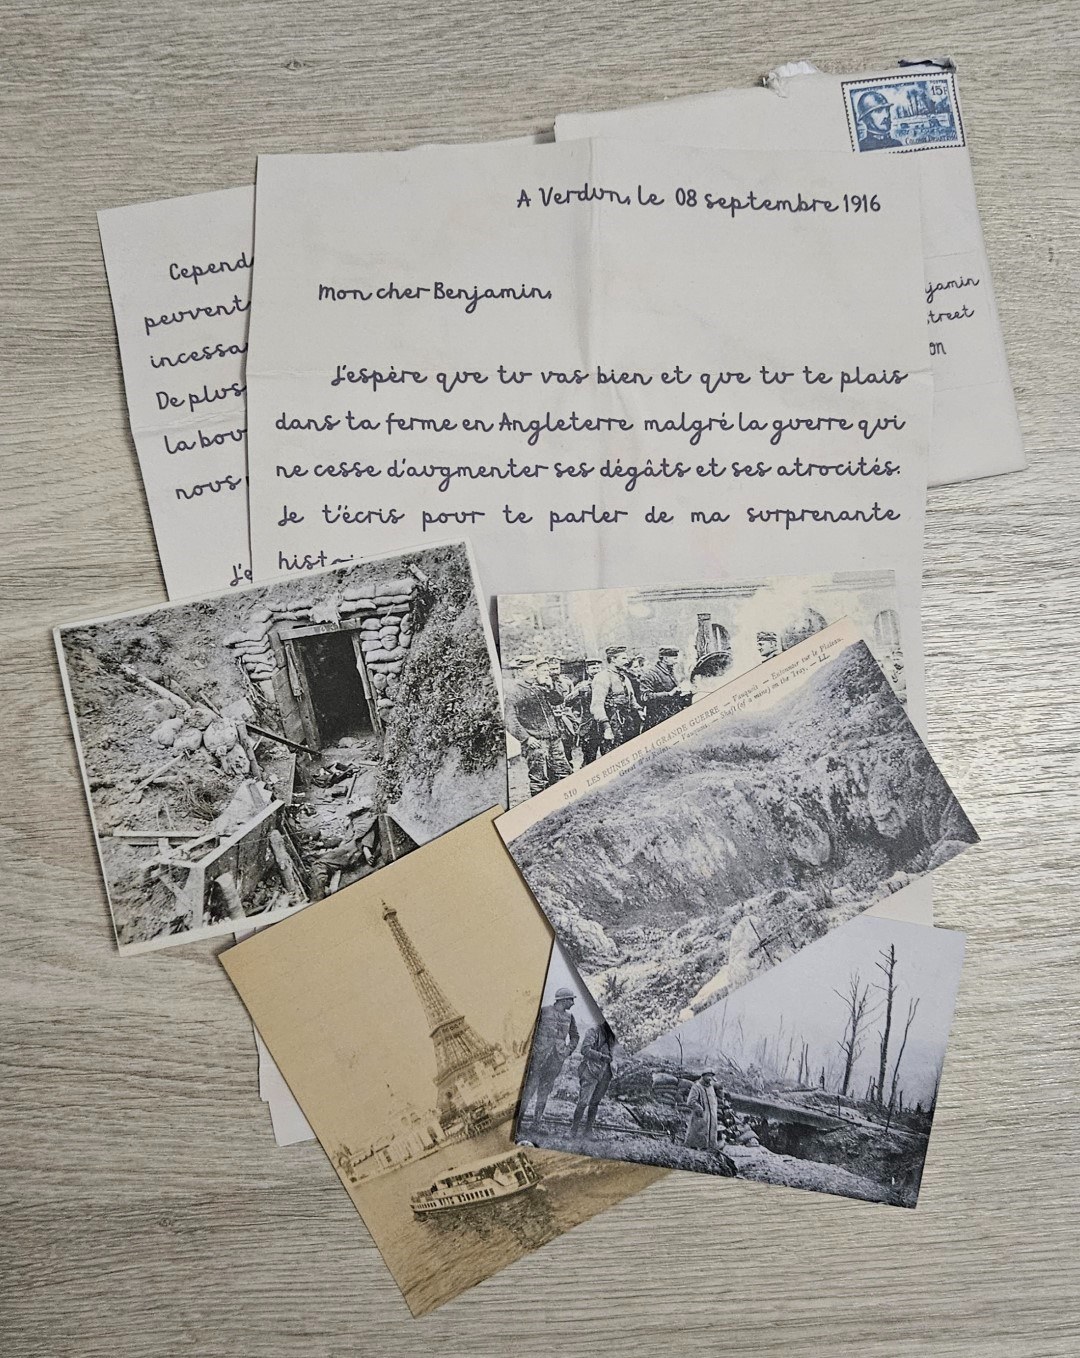 15F
A Verdun, le 08 septembre 1916
Mon cher Benjamin,
J'espère que tu vas bien et que tu te plais
dans ta ferme en Angleterre malgré la guerre qui
ne cesse d'augmenter ses dégâts et ses atrocités.
Je t'écris pour te parler de ma surprenante
histoi
Cepend
peuvent
incessa
De plus
la bou
nous
J'e
jamin
treet
on
310 LES RUINES DE LA GRANDE GUERRE — Vauquois. — Entonnoir sur le Plateau.
Vauquois. — Shaft (of a mine) on the Tray. — LL.